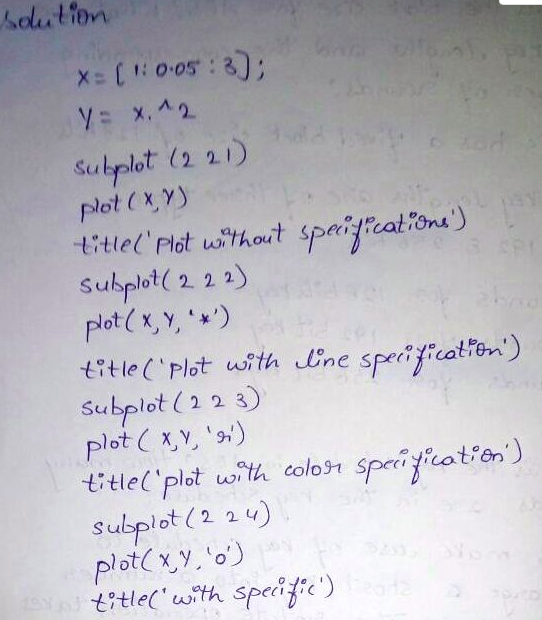 Solution
x = [1:0.05:3];
y = x.^2
subplot (2 2 1)
plot (x,y)
title('plot without specifications')
subplot( 2 2 2)
plot(x,y,'*')
title('plot with line specification')
subplot (2 2 3)
plot ( x,y,'r')
title('plot with color specification')
subplot(2 2 4)
plot(x,y,'o')
title('with specific')